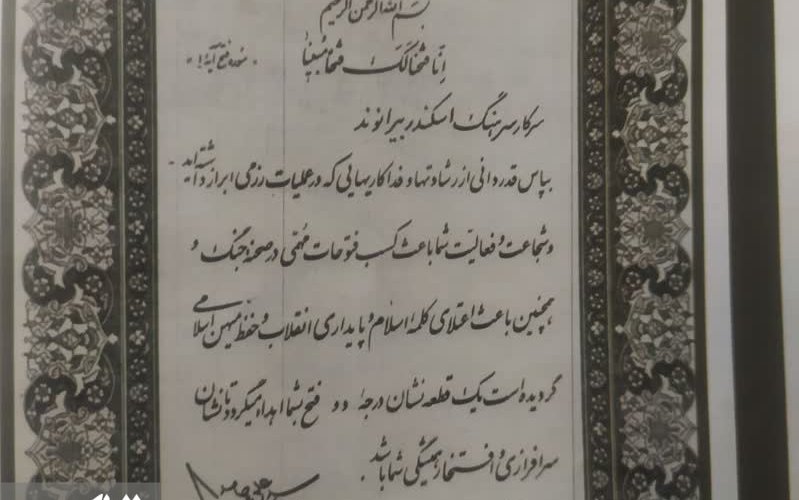 بسم الله الرحمن الرحیم
انا فتحنا لک فتحا مبینا
"سوره فتح آیه ۱"
سرکار سرهنگ اسکندر بیرانوند
بپاس قدردانی از رشادتها و فداکاریهایی که در عملیات رزمی ابراز داشته‌اید.
و شجاعت و فعالیت شما باعث کسب فتوحات مهمی در صحنه جنگ و
همچنین باعث اعتلای کلمه اسلام و پایداری انقلاب و حفظ میهن اسلامی
گردیده است یک قطعه نشان درجه دو فتح بشما اهداء میگردد تا نشان
سرافرازی و افتخار همیشگی شما باشد.